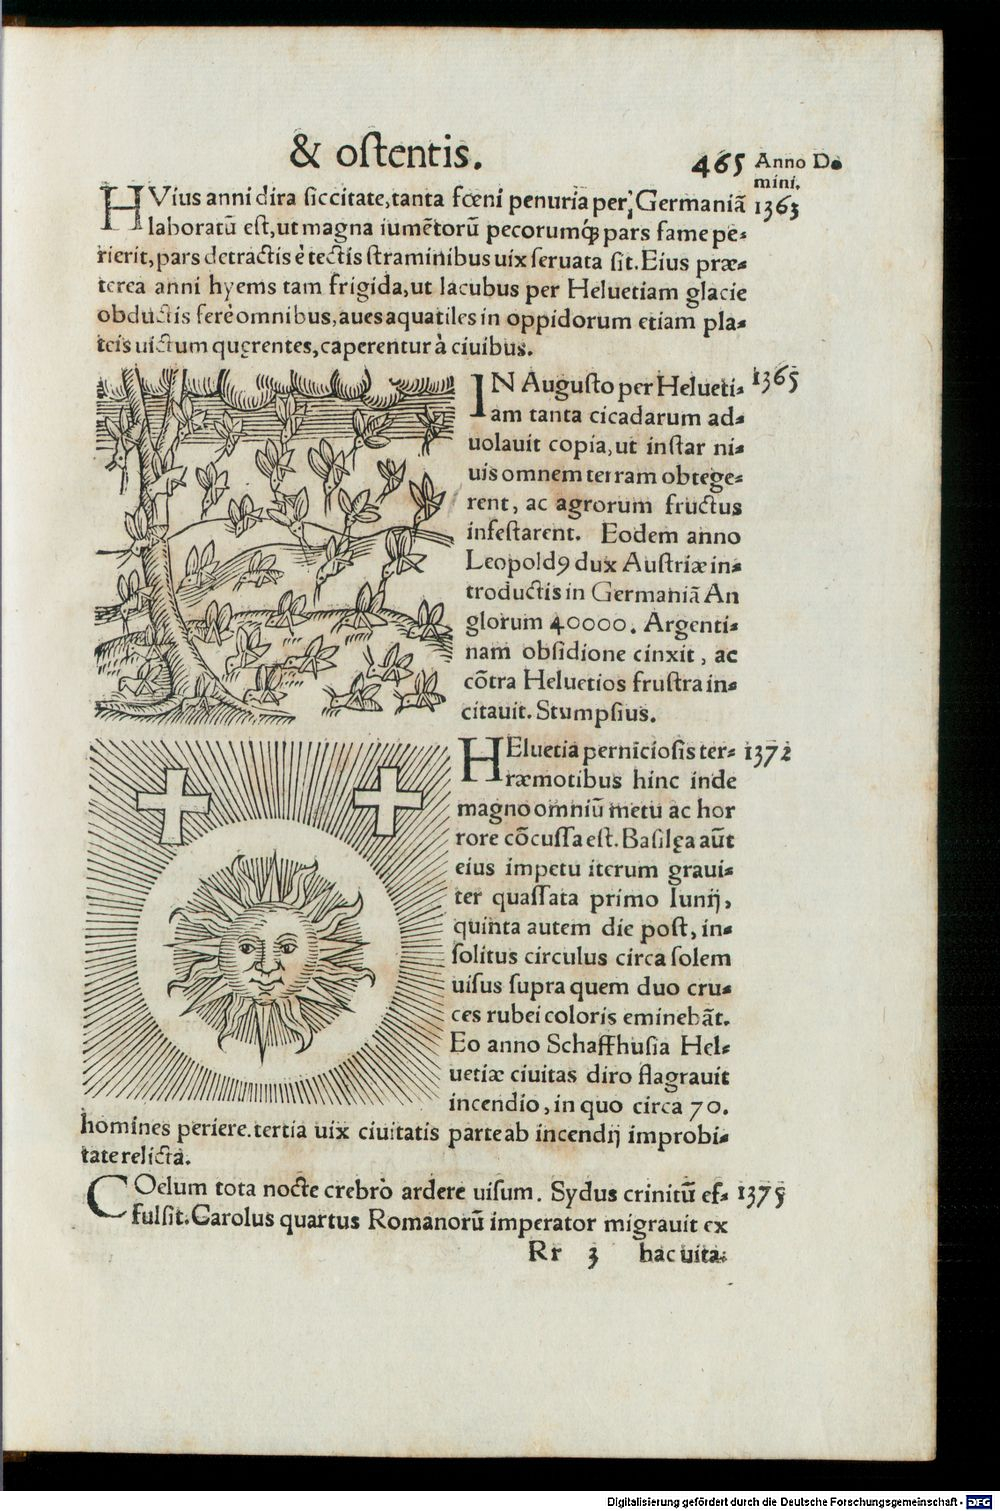 & ostentis. 465 Anno Do
mini.
HVius anni dira siccitate, tanta fœni penuria per Germaniã 1363
laboratũ est, ut magna iumẽtorũ pecorumq́; pars fame pe-
rierit, pars detractis è tectis straminibus uix seruata sit. Eius præ-
terea anni hyems tam frigida, ut lacubus per Heluetiam glacie
obductis ferè omnibus, aues aquatiles in oppidorum etiam pla-
teis uictum quęrentes, caperentur à ciuibus.
IN Augusto per Helueti- 1365
am tanta cicadarum ad-
uolauit copia, ut instar ni-
uis omnem terram obtege-
rent, ac agrorum fructus
infestarent. Eodem anno
Leopoldꝰ dux Austriæ in-
troductis in Germaniã An
glorum 40000. Argenti-
nam obsidione cinxit, ac
cõtra Heluetios frustra in-
citauit. Stumpsius.
HEluetia perniciosis ter- 1372
ræmotibus hinc inde
magno omniũ metu ac hor
rore cõcussa est. Basilęa aũt
eius impetu iterum graui-
ter quassata primo Iunij,
quinta autem die post, in-
solitus circulus circa solem
uisus supra quem duo cru-
ces rubei coloris eminebãt.
Eo anno Schaffhusia Hel-
uetiæ ciuitas diro flagrauit
incendio, in quo circa 70.
homines periere. tertia uix ciuitatis parte ab incendij improbi-
tate relicta.
COelum tota nocte crebrò ardere uisum. Sydus crinitũ ef- 1375
fulsit. Carolus quartus Romanorũ imperator migrauit ex
Rr 3 hac uita.
Digitalisierung gefördert durch die Deutsche Forschungsgemeinschaft - DFG